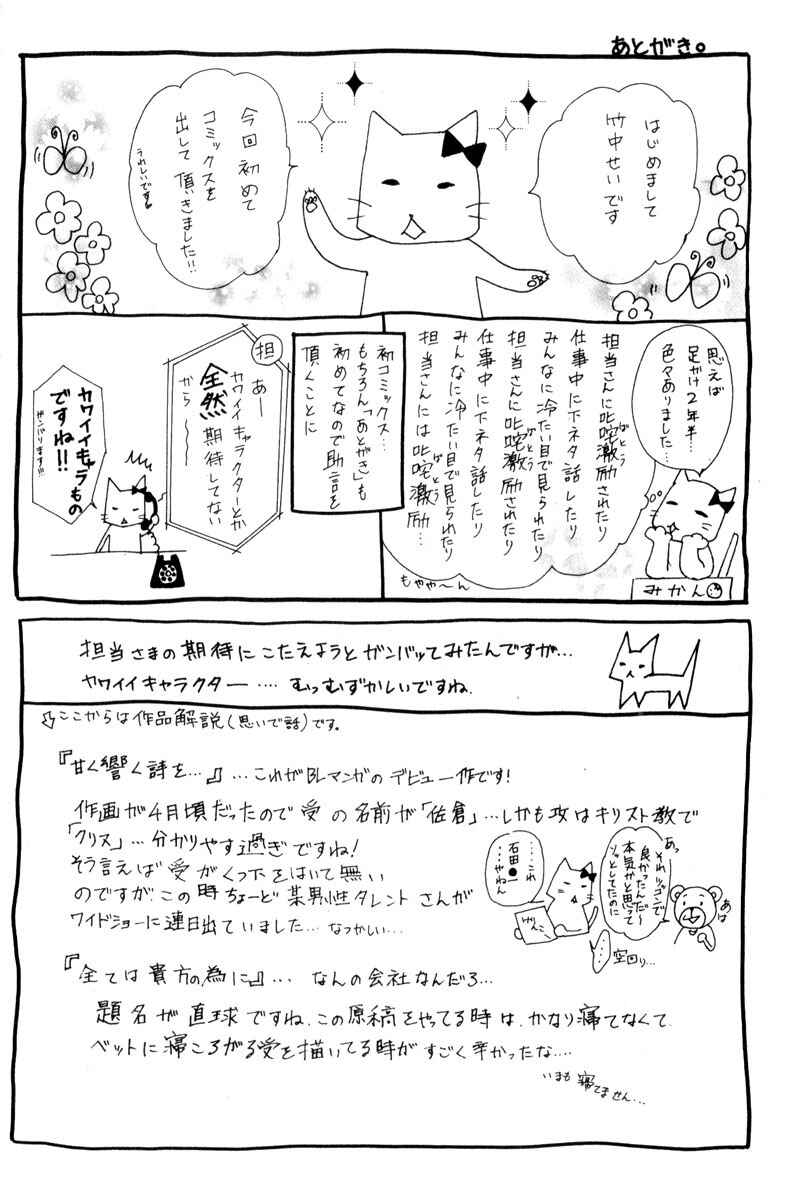 あとがき。
はじめまして
竹中せいです
今回初めて
コミックスを
出して頂きました!!
うれしいです
思えば
足がけ2年半…
色々ありました…
担当さんに叱咤激励されたり
ばとう
仕事中に下ネタ話したり
みんなに冷たい目で見られたり
担当さんに叱咤激励されたり
ばとう
仕事中に下ネタ話したり
みんなに冷たい目で見られたり
担当さんには叱咤激励…
ばとう
もやや〜ん
みかん
初コミックス…
もちろん「あとがき」も
初めてなので助言を
頂くことに
担
あー
カワイイキャラクターとか
全然期待してない
から〜
カワイイキャラもの
ですね!!
ガンバリます!!!
担当さまの期待にこたえようとガンバッてみたんですが…
カワイイキャラクター‥‥むっむずかしいですね.
ここからは作品解説(思いで話)です。
『甘く響く詩を…』…これがBLマンガのデビュー作です!
作画が4月頃だったので受の名前が「佐倉」…しかも攻はキリスト教で
「クリス」…分かりやす過ぎですね!
そう言えば受がくつ下をはいて無い
のですが、この時ちょーど某男性タレントさんが
ワイドショーに連日出ていました…なつかしい…
‥‥これ
石田●一
‥‥やねん
げんこー
あっ
それジョーダンで
良かったんだ〜
本気かと思って
ゾッとしてたのに
あは
‥‥
空回り…
『全ては貴方の為に』…なんの会社なんだろ…
題名が直球ですね.この原稿をやってる時は、かなり寝てなくて
ベットに寝ころがる受を描いてる時がすごく辛かったな‥‥
いまも寝てません…